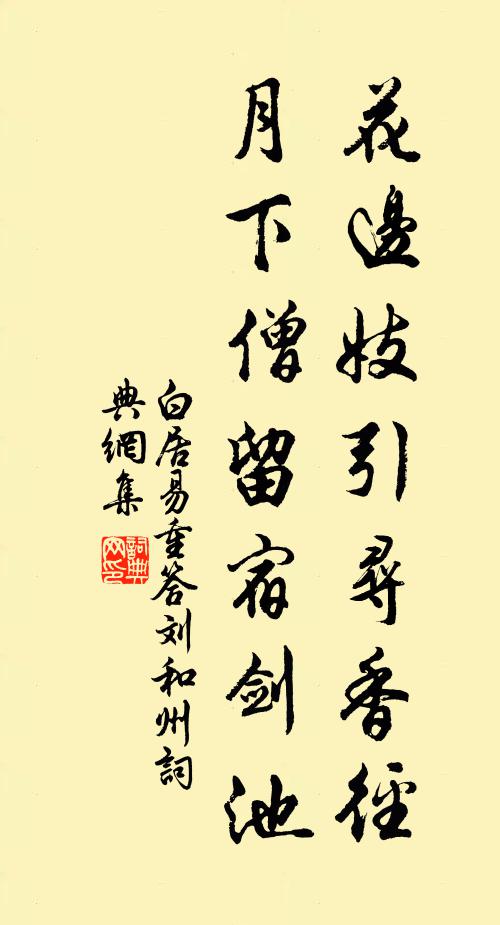 花邊妓引尋香徑
月下僧留宿劍池
白居易重答刘和州詞
典網集
詞典
网印